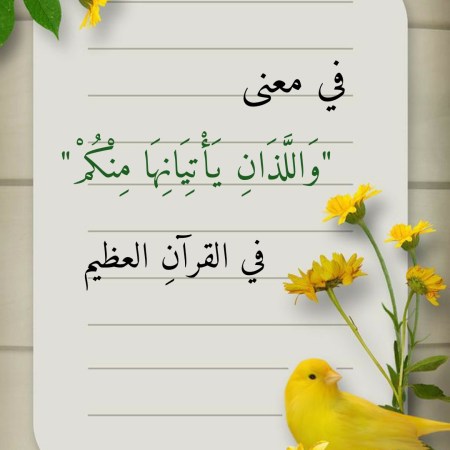 في معنى
"وَاللَّذَانِ يَأْتِيَانِهَا مِنْكُمْ"
في القرآنِ العظيم